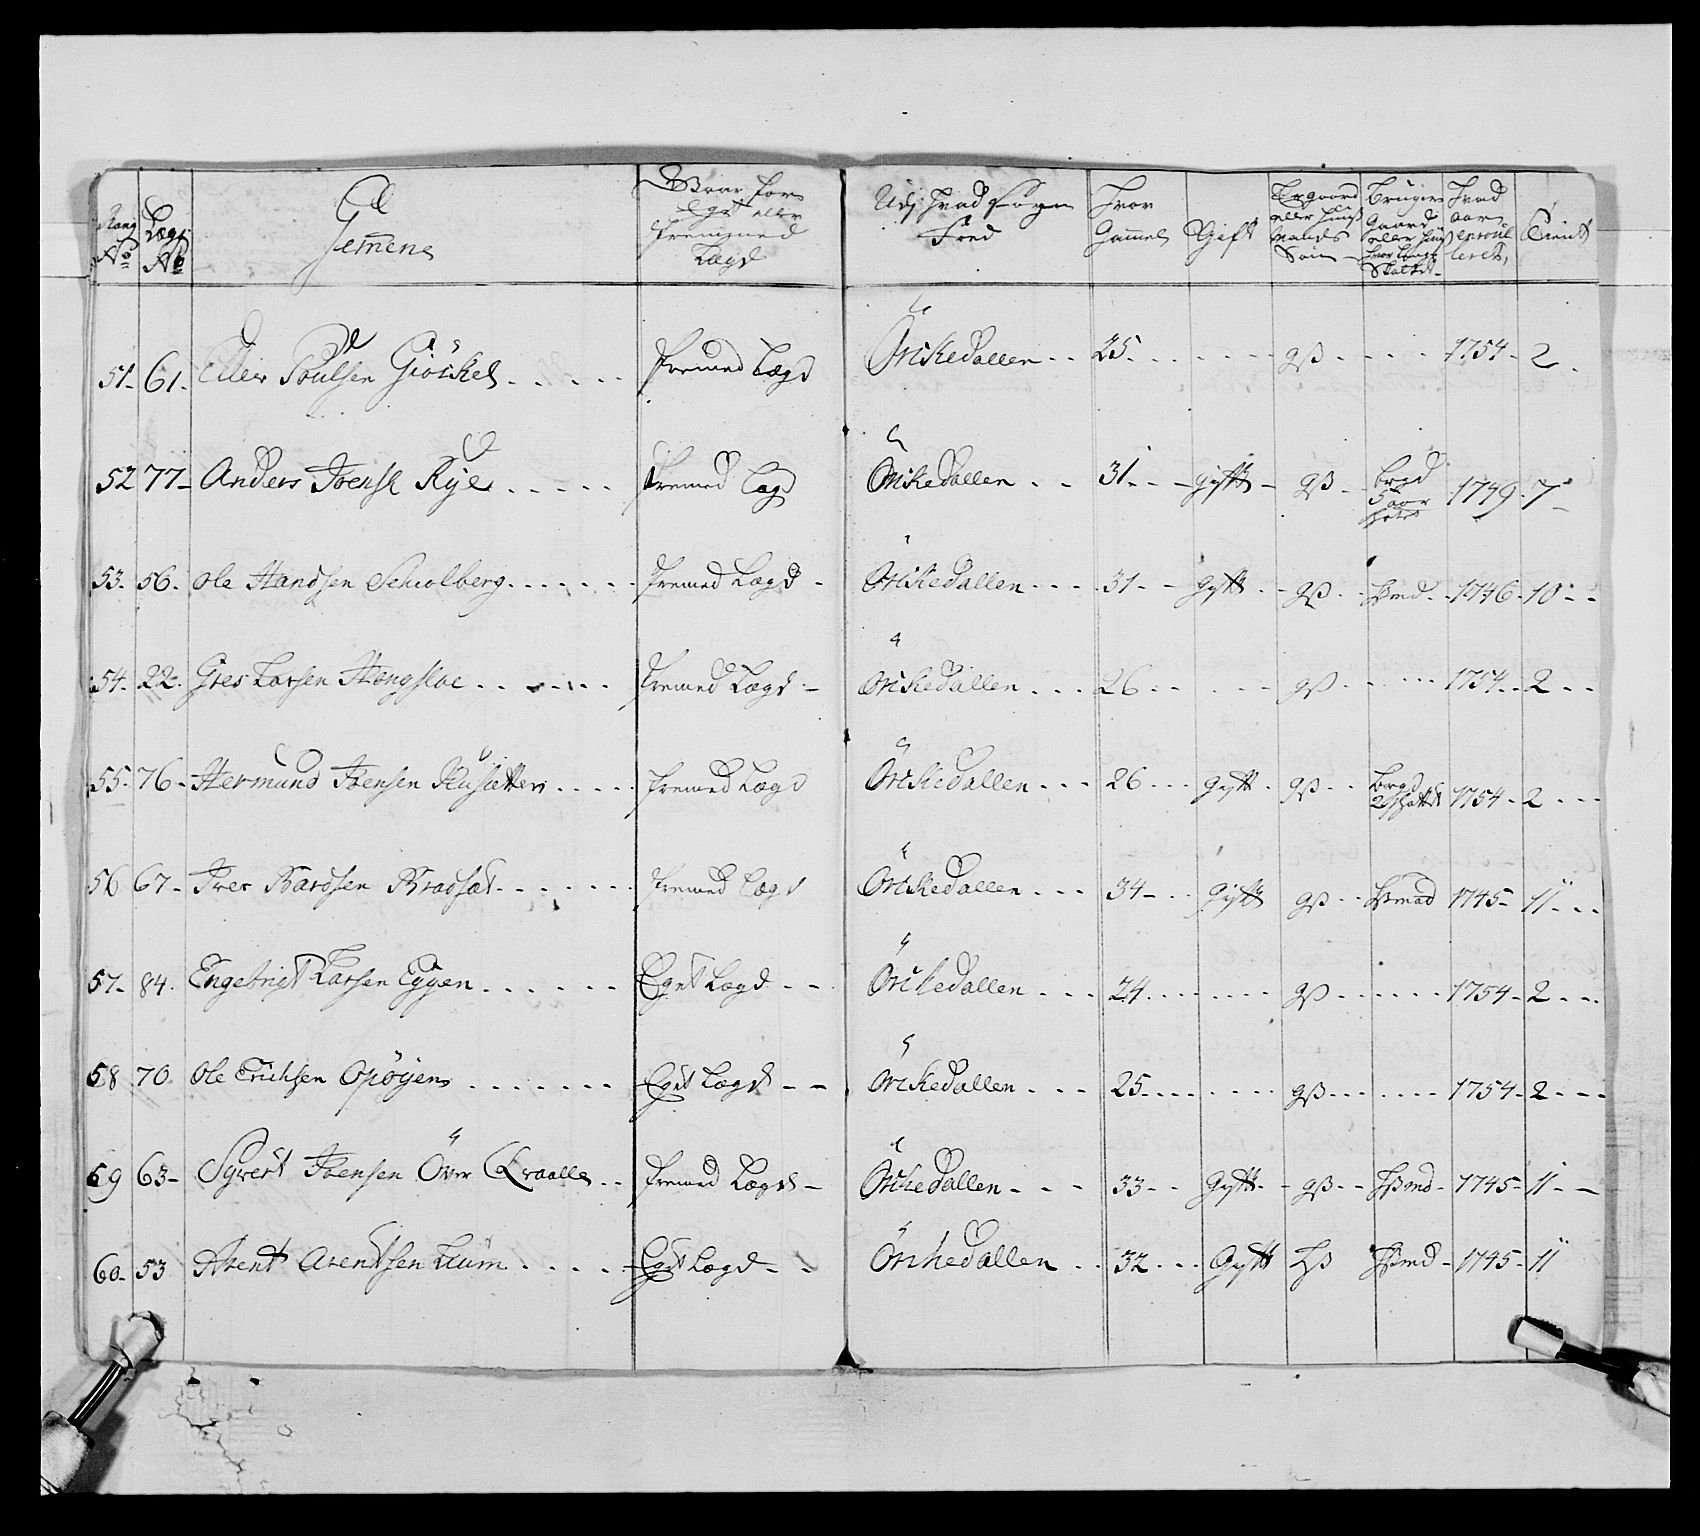 Rang No | Lægds No | Gemene | Svar for Eget eller Fremmed Lægd | Udj hvad Sogn Fød | Hvor Gammel | Gift | Er gaard eller Huus Mands Søn | Bruger Gaard eller Huus | Hvad aar enroulleret | Tient
51. 61. Eller Poulsen Giöskel fremed Lægd Örkedallen 25 gß 1754 2
52 77 Anders Joensk Rye fremed Lægd Örkedallen 31 gyft gß brgd 5 aar 1749 7
53. 56. Ole Handsen Schiolberg fremed Lægd Örkedallen 31 gyft gß Hßmd 1746 10
54. 22. Gres Larsen Hongsloe fremed Lægd Örkedallen 26 gß 1754 2
55. 76 Hermund Joensen fremed Lægd Örkedallen 26 gyft gß brgd 2 1754 2
56 67 Iver Bardsen Bradsæt fremed Lægd Örkedallen 34 gyft gß Hßmd 1745 11
57. 84. Engebrigt Larsen Eggen Eget Lægd Örkedallen 24 gß 1754 2
58 70 Ole Erichsen Opöyens Eget Lægd Örkedallen 25 gß 1754 2
59 63 Syvert Joensen Över Qvaalle fremed Lægd Örkedallen 33 gyft gß Hßmd 1745 11
60. 53 Arent Arentsen Lium Eget Lægd Örkedallen 32 Gyft Hß Hßmd 1745 11